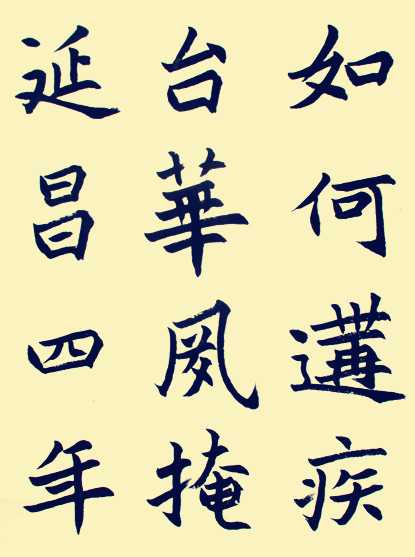 如何遘疾
台華夙掩
延昌四年